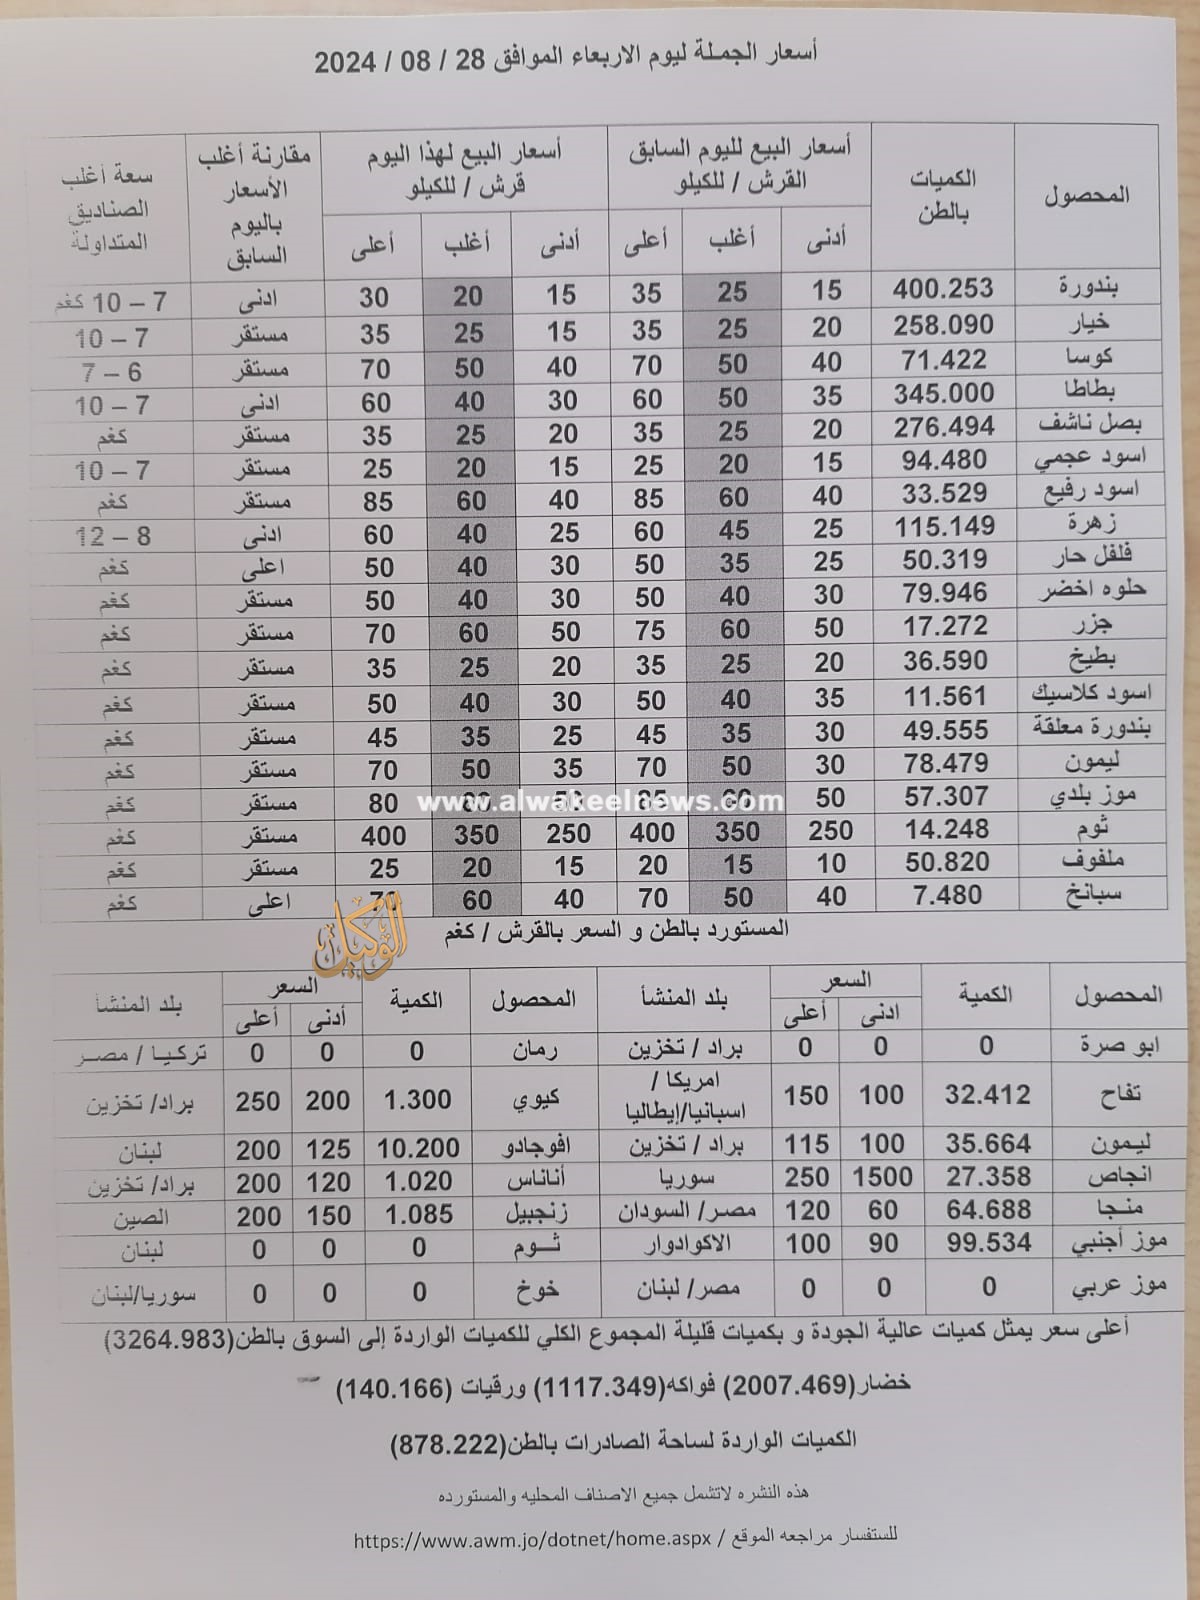 أسعار الجملة ليوم الاربعاء الموافق 28 / 08 / 2024
المحصول الكميات بالطن أسعار البيع لليوم السابق القرش / للكيلو أسعار البيع لهذا اليوم قرش / للكيلو مقارنة أغلب الأسعار باليوم السابق سعة أغلب الصناديق المتداولة
أدنى أغلب أعلى أدنى أغلب أعلى
بندورة 400.253 15 25 35 15 20 30 ادنى 7 – 10 كغم
خيار 258.090 20 25 35 15 25 35 مستقر 7 – 10
كوسا 71.422 40 50 70 40 50 70 مستقر 6 – 7
بطاطا 345.000 35 50 60 30 40 60 ادنى 7 – 10
بصل ناشف 276.494 20 25 35 20 25 35 مستقر كغم
اسود عجمي 94.480 15 20 25 15 20 25 مستقر 7 – 10
اسود رفيع 33.529 40 60 85 40 60 85 مستقر كغم
زهرة 115.149 25 45 60 25 40 60 ادنى 8 – 12
فلفل حار 50.319 25 35 50 30 40 50 اعلى كغم
حلوه اخضر 79.946 30 40 50 30 40 50 مستقر كغم
جزر 17.272 50 60 75 50 60 70 مستقر كغم
بطيخ 36.590 20 25 35 20 25 35 مستقر كغم
اسود كلاسيك 11.561 35 40 50 30 40 50 مستقر كغم
بندورة معلقة 49.555 30 35 45 25 35 45 مستقر كغم
ليمون 78.479 30 50 70 35 50 70 مستقر كغم
موز بلدي 57.307 50 80 مستقر كغم
www.alwakeelnews.com
ثوم 14.248 250 350 400 250 350 400 مستقر كغم
ملفوف 50.820 10 15 20 15 20 25 مستقر كغم
سبانخ 7.480 40 50 70 40 60 اعلى كغم
الوكيل
المستورد بالطن و السعر بالقرش / كغم
المحصول الكمية السعر بلد المنشأ المحصول الكمية السعر بلد المنشأ
ادنى أعلى أدنى أعلى
ابو صرة 0 0 0 براد / تخزين رمان 0 0 0 تركيا / مصر
تفاح 32.412 100 150 امريكا / اسبانيا/إيطاليا كيوي 1.300 200 250 براد/ تخزين
ليمون 35.664 100 115 براد / تخزين افوجادو 10.200 125 200 لبنان
انجاص 27.358 1500 250 سوريا أناناس 1.020 120 200 براد/ تخزين
منجا 64.688 60 120 مصر/ السودان زنجبيل 1.085 150 200 الصين
موز أجنبي 99.534 90 100 الاكوادوار ثـوم 0 0 0 لبنان
موز عربي 0 0 0 مصر/ لبنان خوخ 0 0 0 سوريا/لبنان
أعلى سعر يمثل كميات عالية الجودة و بكميات قليلة المجموع الكلي للكميات الواردة إلى السوق بالطن(3264.983)
خضار(2007.469) فواكه(1117.349) ورقيات (140.166)
الكميات الواردة لساحة الصادرات بالطن(878.222)
هذه النشره لاتشمل جميع الاصناف المحليه والمستورده
للستفسار مراجعه الموقع / https://www.awm.jo/dotnet/home.aspx